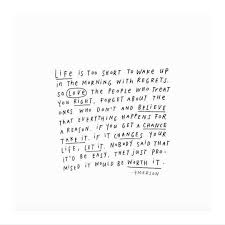 LIFE IS TOO SHORT TO WAKE UP
IN THE MORNING WITH REGRETS.
SO LOVE THE PEOPLE WHO TREAT
YOU RIGHT, FORGET ABOUT THE
ONES WHO DON'T AND BELIEVE
THAT EVERYTHING HAPPENS FOR
A REASON. IF YOU GET A CHANCE
TAKE IT. IF IT CHANGES YOUR
LIFE, LET IT. NOBODY SAID THAT
IT'D BE EASY, THEY JUST PRO-
MISED IT WOULD BE WORTH IT.
-EMERSON